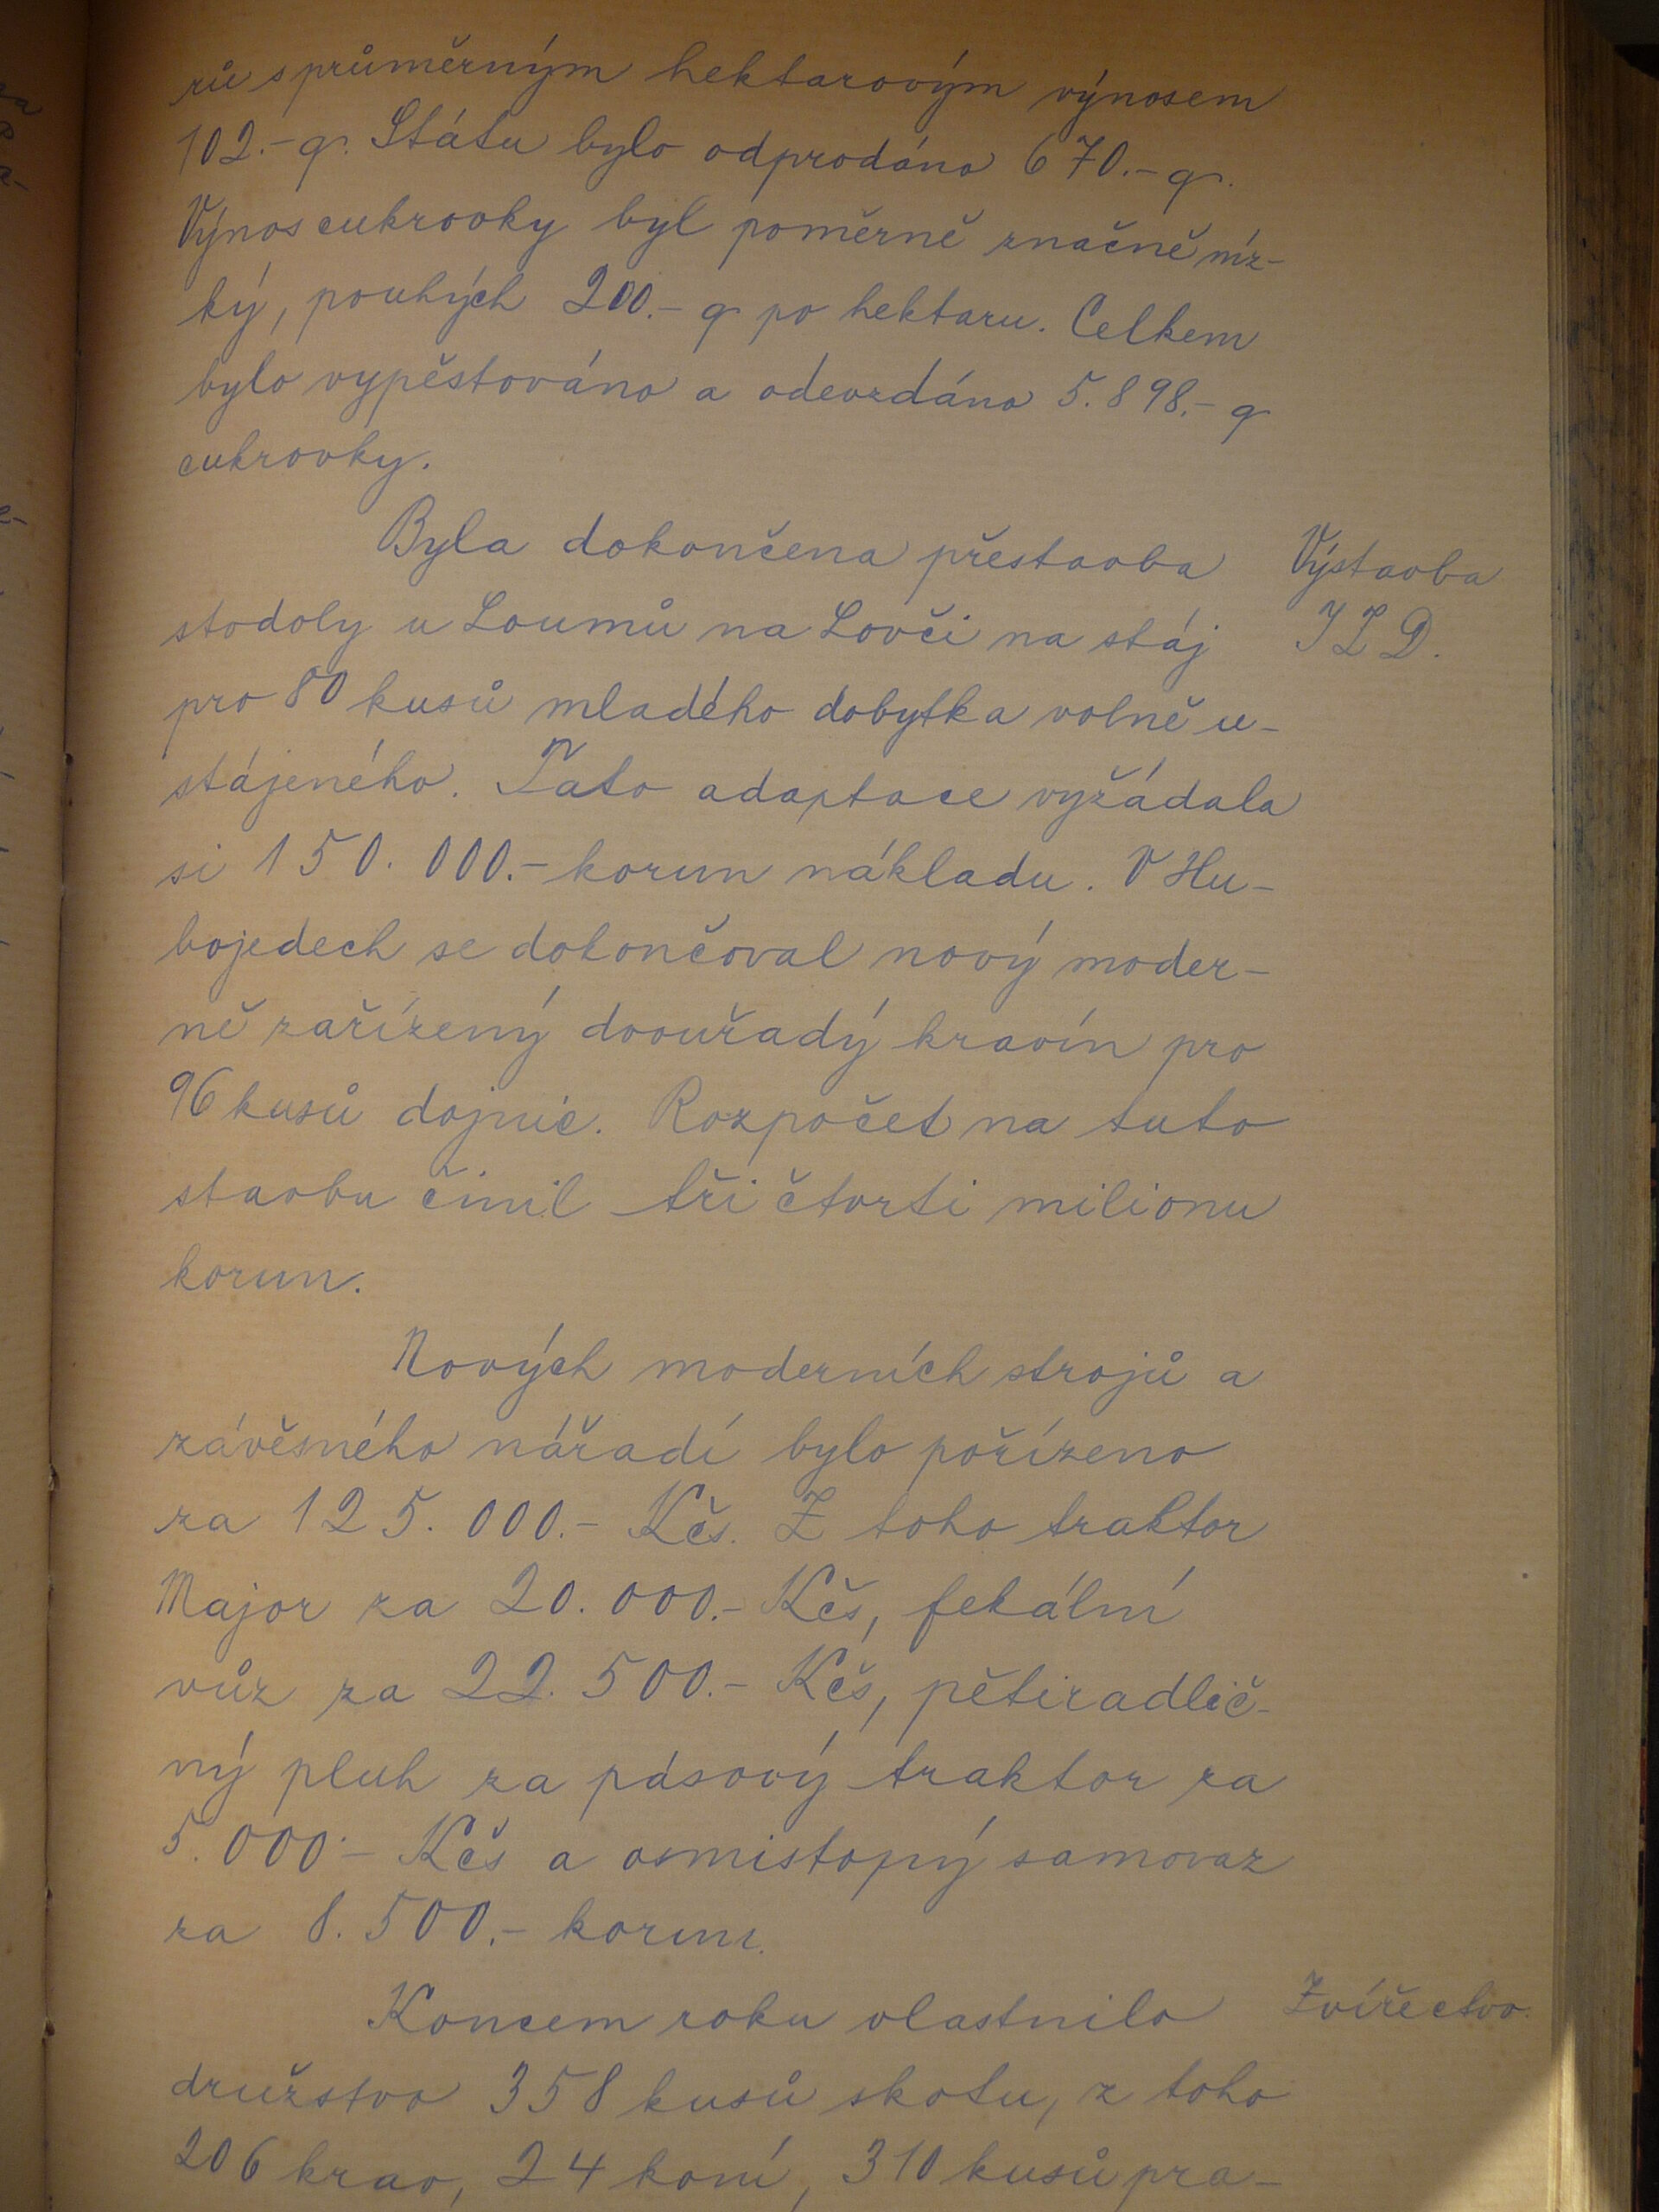 rů s průměrným hektarovým výnosem
102.- q. Státu bylo odprodáno 670.- q.
Výnos cukrovky byl poměrně značně níz-
ký, pouhých 200.- q po hektaru. Celkem
bylo vypěstováno a odevzdáno 5.898.- q
cukrovky.
Byla dokončena přestavba
Výstavba
stodoly u Loumů na Lovči na stáj
JZD.
pro 80 kusů mladého dobytka volně u-
stájeného. Tato adaptace vyžádala
si 150.000.- korun nákladu. V Hu-
bojedech se dokončoval nový moder-
ně zařízený dvouřadý kravín pro
96 kusů dojnic. Rozpočet na tuto
stavbu činil tři čtvrti milionu
korun.
Nových moderních strojů a
závěsného nářadí bylo pořízeno
za 125.000.- Kčs. Z toho traktor
Major za 20.000.- Kčs, fekální
vůz za 22.500.- Kčs, pětiradlič-
ný pluh za pásový traktor za
5.000.- Kčs a osmistopý samovaz
za 8.500.- korun.
Koncem roku vlastnilo
Zvířectvo.
družstvo 358 kusů skotu, z toho
206 krav, 24 koní, 310 kusů pra-